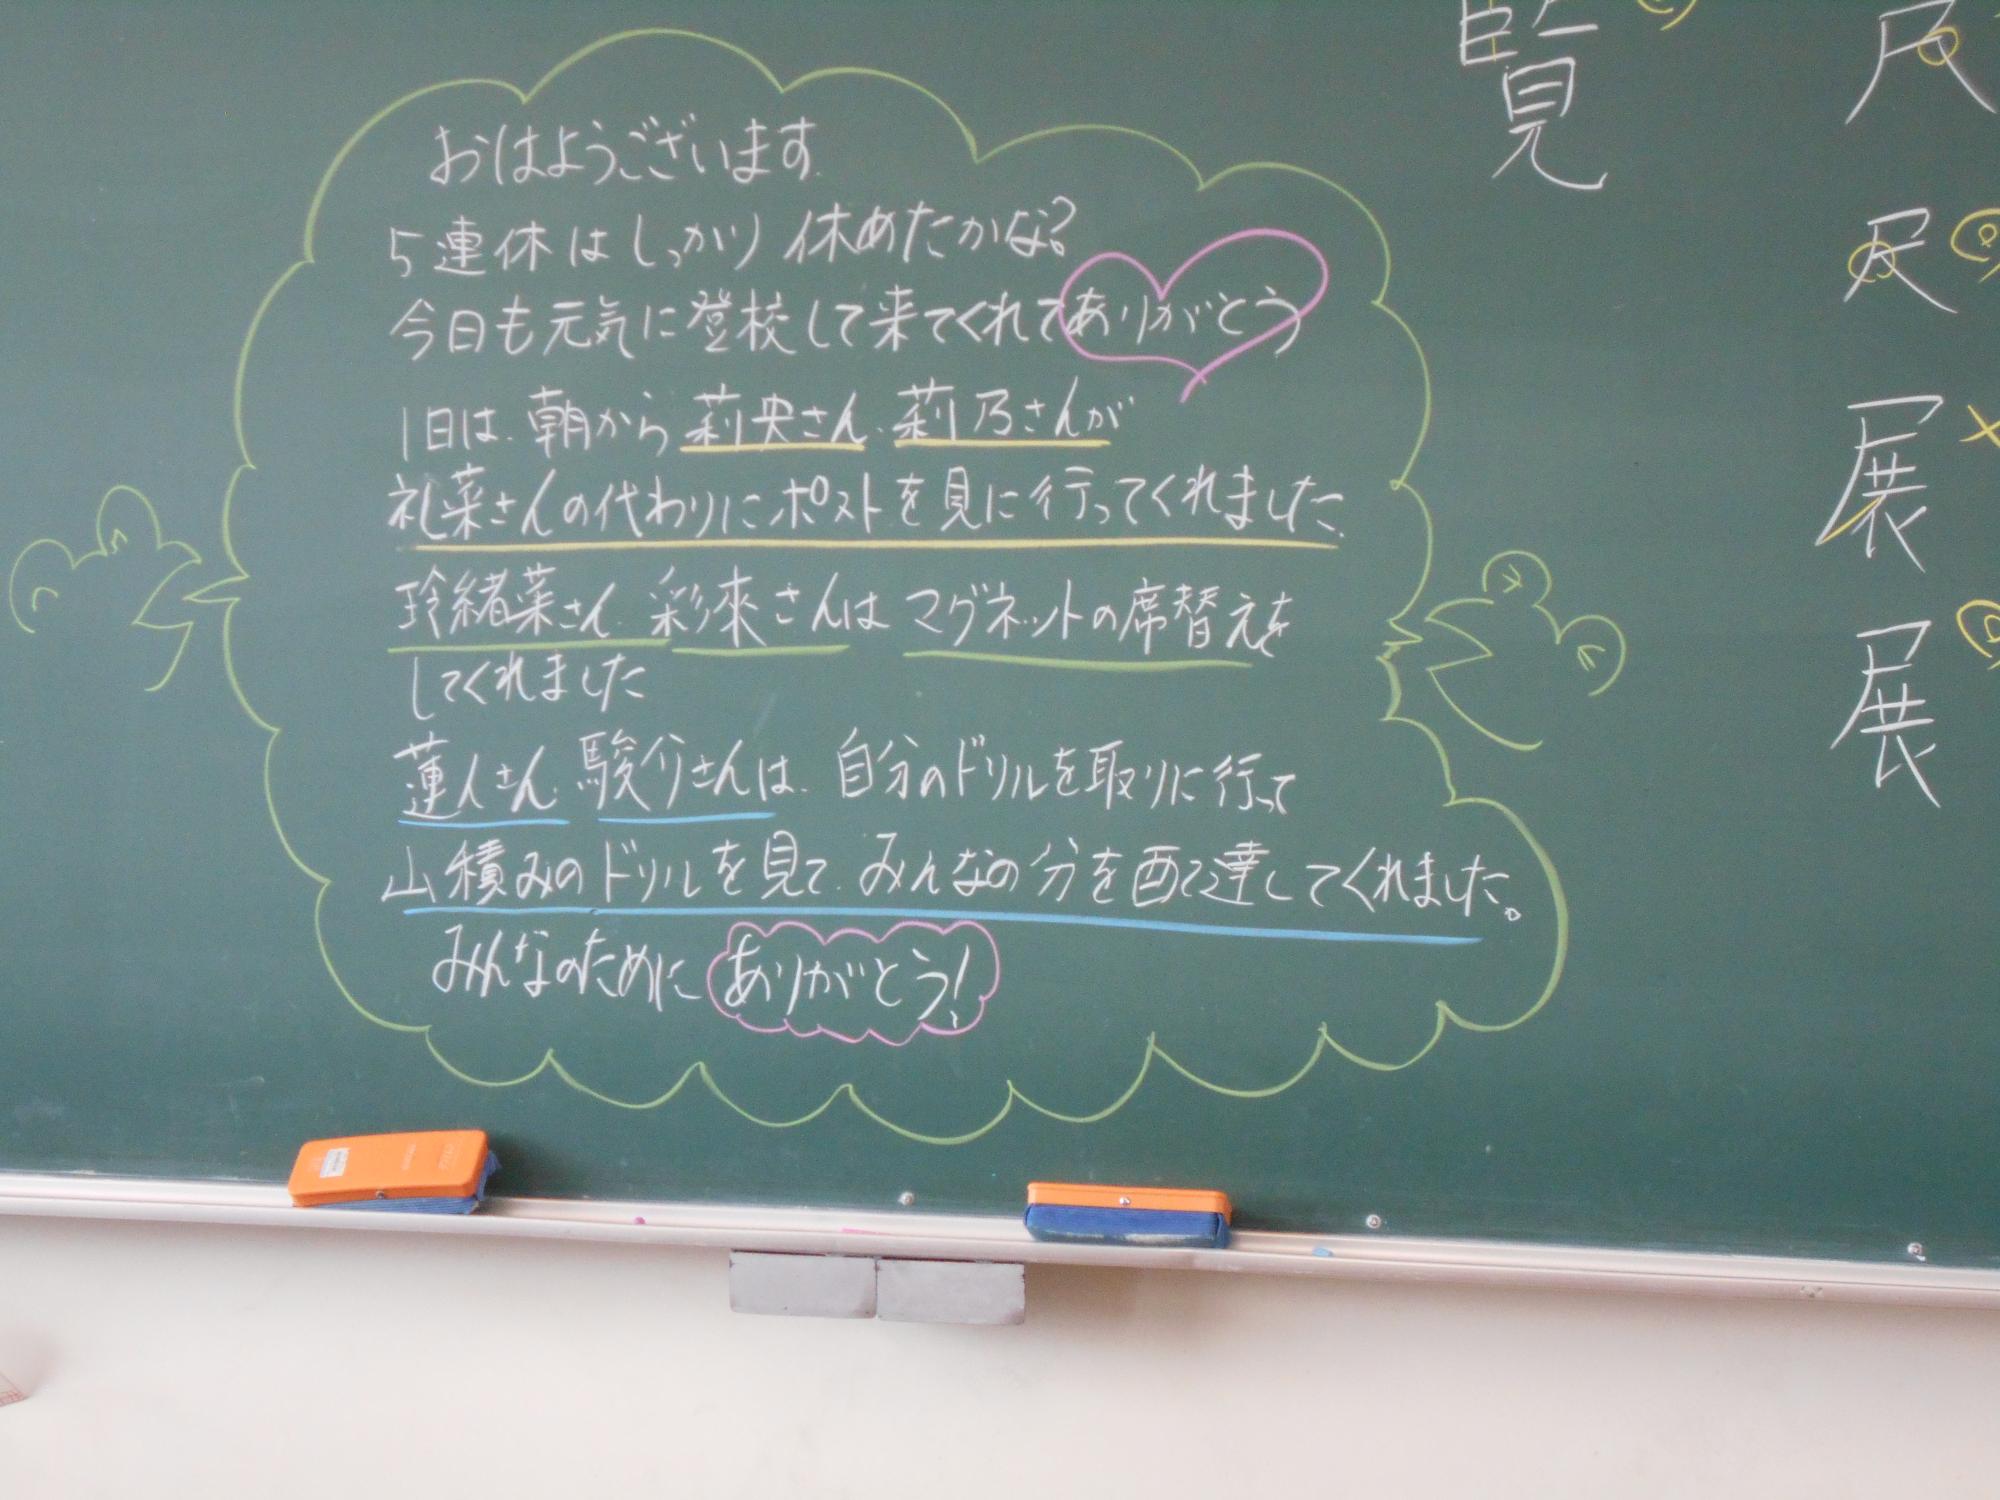 おはようございます.
5連休はしっかり休めたかな?
今日も元気に登校して来てくれてありがとう
1日は、朝から莉央さん、莉乃さんが
礼菜さんの代わりにポストを見に行ってくれました。
玲緒菜さん、彩來さんはマグネットの席替えを
してくれました
蓮人さん、駿介さんは、自分のドリルを取りに行って
山積みのドリルを見て、みんなの分を配達してくれました。
みんなのためにありがとう!
覧
尺
尺
展
展